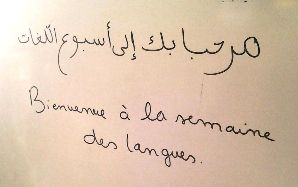 مرحبا بك إلى أسبوع اللّغات
Bienvenue à la semaine
des langues.